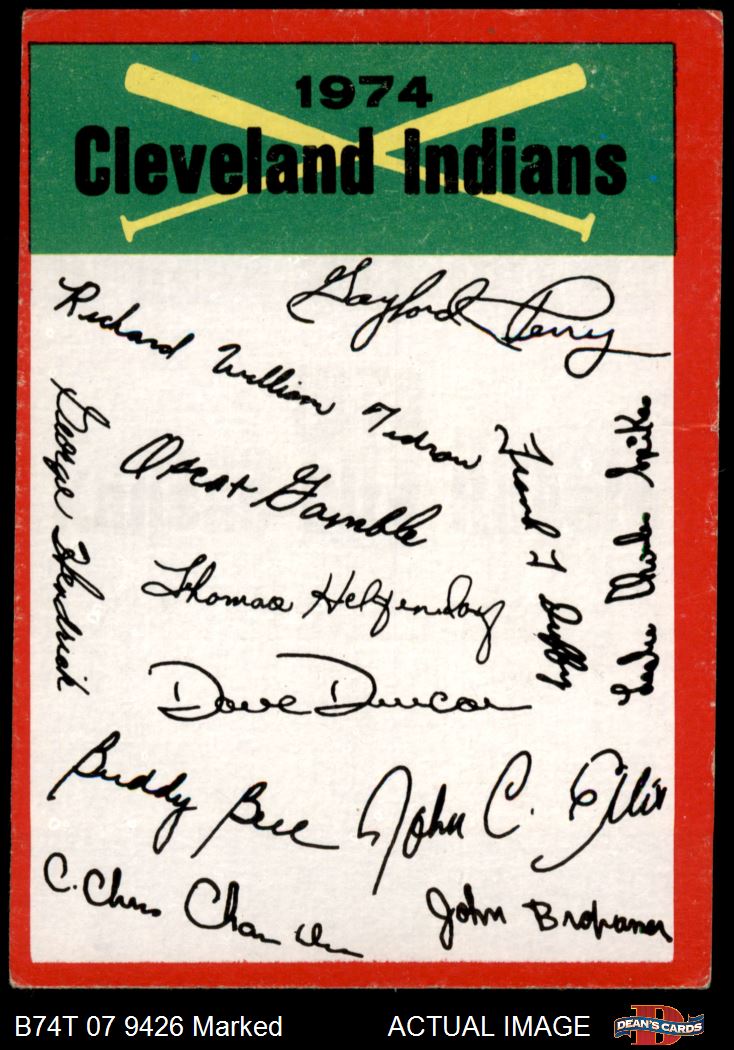 1974
Cleveland Indians
Gaylord Perry
Richard William Tidrow
George Hendrick
Oscar Gamble
Frank T Duffy
Leslie Charles Spikes
Thomas Hilgendorf
Dave Duncan
Buddy Bell
John C. Ellis
C. Chris Cham
John Brohamer
B74T 07 9426 Marked
ACTUAL IMAGE
D
DEAN'S CARDS